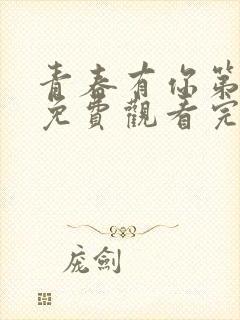 青春有你第
免費觀看完
庞劍